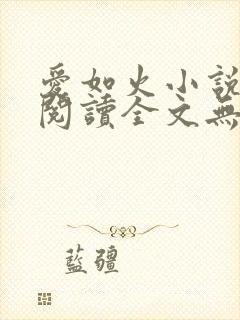 愛如火小說
閱讀全文無
藍疆